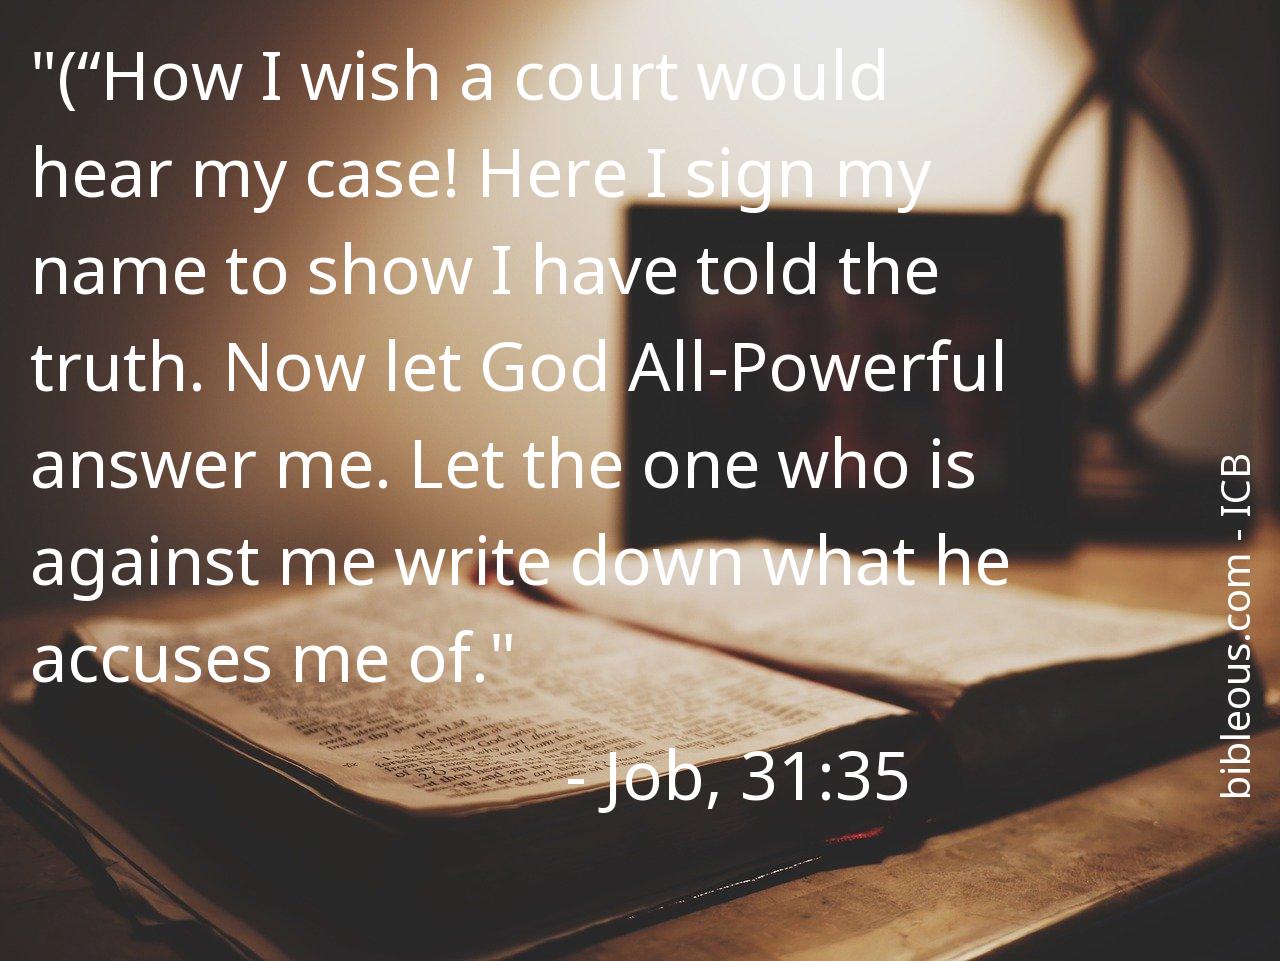 "(“How I wish a court would
hear my case! Here I sign my
name to show I have told the
truth. Now let God All-Powerful
answer me. Let the one who is
against me write down what he
accuses me of."
- Job, 31:35
bibleous.com - ICB
PSALM 22